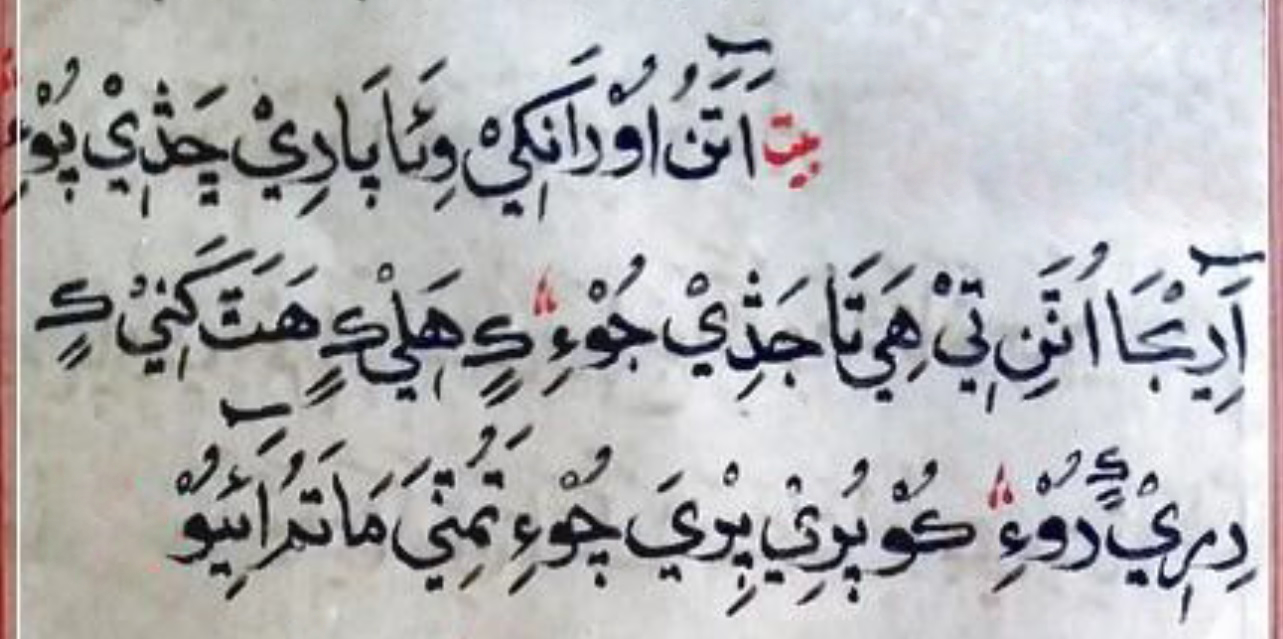 بيت آتَنُ اوُرَانکِيْ وِئَا پَارِيْ چَڏِيْ پُوْءِ
آرِيْجَا اُتَنِ تِيْ هِيَ تَا جَڏِيْ جُوْءِ کٍ هَلِيْ کٍ هَٿَ کَنِيُ کٍ
دُوْءِ کُوْ پُرِيْ پِرِيَ چُوْءِ تَمُتِيَ مَاتَمُ آيَيوُْ